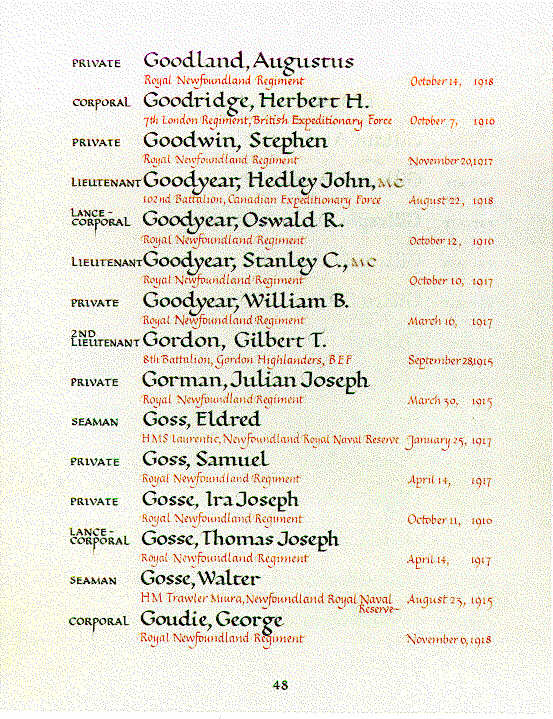 PRIVATE Goodland, Augustus
Royal Newfoundland Regiment October 14, 1918
CORPORAL Goodridge, Herbert H.
7th London Regiment, British Expeditionary Force October 7, 1916
PRIVATE Goodwin, Stephen
Royal Newfoundland Regiment November 20, 1917
LIEUTENANT Goodyear, Hedley John, MC
102nd Battalion, Canadian Expeditionary Force August 22, 1918
LANCE-
CORPORAL Goodyear, Oswald R.
Royal Newfoundland Regiment October 12, 1916
LIEUTENANT Goodyear, Stanley C., MC
Royal Newfoundland Regiment October 10, 1917
PRIVATE Goodyear, William B.
Royal Newfoundland Regiment March 16, 1917
2ND
LIEUTENANT Gordon, Gilbert T.
8th Battalion, Gordon Highlanders, BEF September 28, 1915
PRIVATE Gorman, Julian Joseph
Royal Newfoundland Regiment March 30, 1915
SEAMAN Goss, Eldred
HMS Laurentic, Newfoundland Royal Naval Reserve January 25, 1917
PRIVATE Goss, Samuel
Royal Newfoundland Regiment April 14, 1917
PRIVATE Gosse, Ira Joseph
Royal Newfoundland Regiment October 11, 1916
LANCE-
CORPORAL Gosse, Thomas Joseph
Royal Newfoundland Regiment April 14, 1917
SEAMAN Gosse, Walter
HM Trawler Miura, Newfoundland Royal Naval August 23, 1915
Reserve-
CORPORAL Goudie, George
Royal Newfoundland Regiment November 6, 1918
48